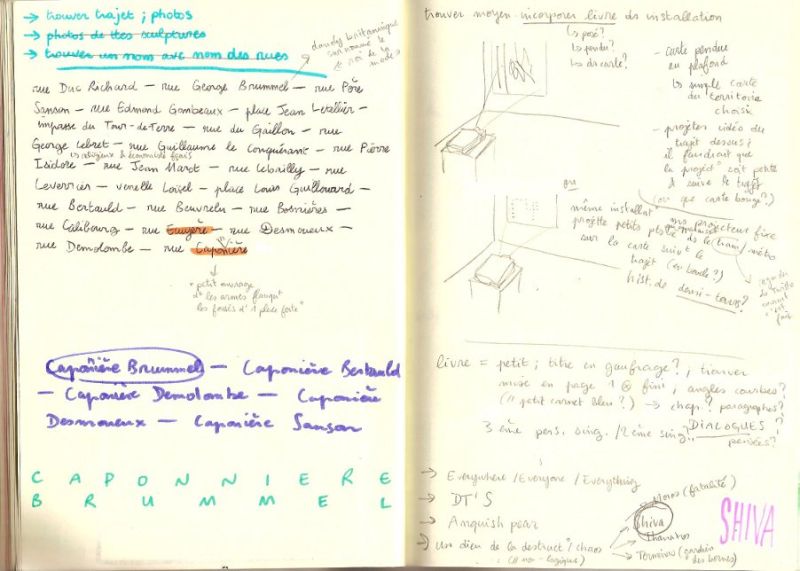 → trouver trajet ; photos
→ photos de ttes sculptures
→ trouver un nom avec nom des rues
dandy britannique surnommé le "roi de la mode"
rue Duc Richard — rue George Brummel — rue Père
Sanson — rue Edmond Gombeaux — place Jean Letellier —
impasse du Tour-de-Terre — rue du Gaillon — rue
George Lebret — rue Guillaume le Conquérant — rue Pierre
Isidore — rue Jean Marot — rue Lebailly — rue
Leverrier — venelle Loisel — place Louis Guillouard —
rue Bertauld — rue Beuvrelu — rue Bosnières —
rue Calibourg — rue Gruyère — rue Desmoueux —
rue Demolombe — rue Caponière
"petit ouvrage
dt les armes flanquent
les fossés d'1 place forte"
Caponnière Brummel — Caponière Bertauld
— Caponière Demolombe — Caponière
Desmoueux — Caponière Sanson
CAPONNIERE
BRUMMEL
trouver moyen incorporer livre ds installation
↳ posé ?
↳ pendu ?
↳ ds carte ?
— carte pendue
en plafond
↳ simple carte
du territoire
choisi
— projeter vidéo du
trajet dessus ?
il faudrait que
la project° soit petite
& suive le trajet
(ou que carte bouge ?)
ou
même installat°
projette petits
sur la carte suivt le
trajet (en boucle ?)
hist. de demi-tours ?
projecteur fixe
livre = petit ; titre en gaufrage ? ; trouver
mise en page 1 @ fini ; angles courbes ?
(// petit carnet bleu ?) → chap ? paragraphes ?
3 ème pers. sing. / 2ème sing ? DIALOGUES ?
pensées ?
→ Everywhere / Everyone / Everything
→ DT'S
→ Anguish pear
→ un dieu de la destruct° / chaos
(// non-logique)
→ Moros (fatalité)
Shiva
Thanatos
→ Terminus (gardien
des bornes)
SHIVA